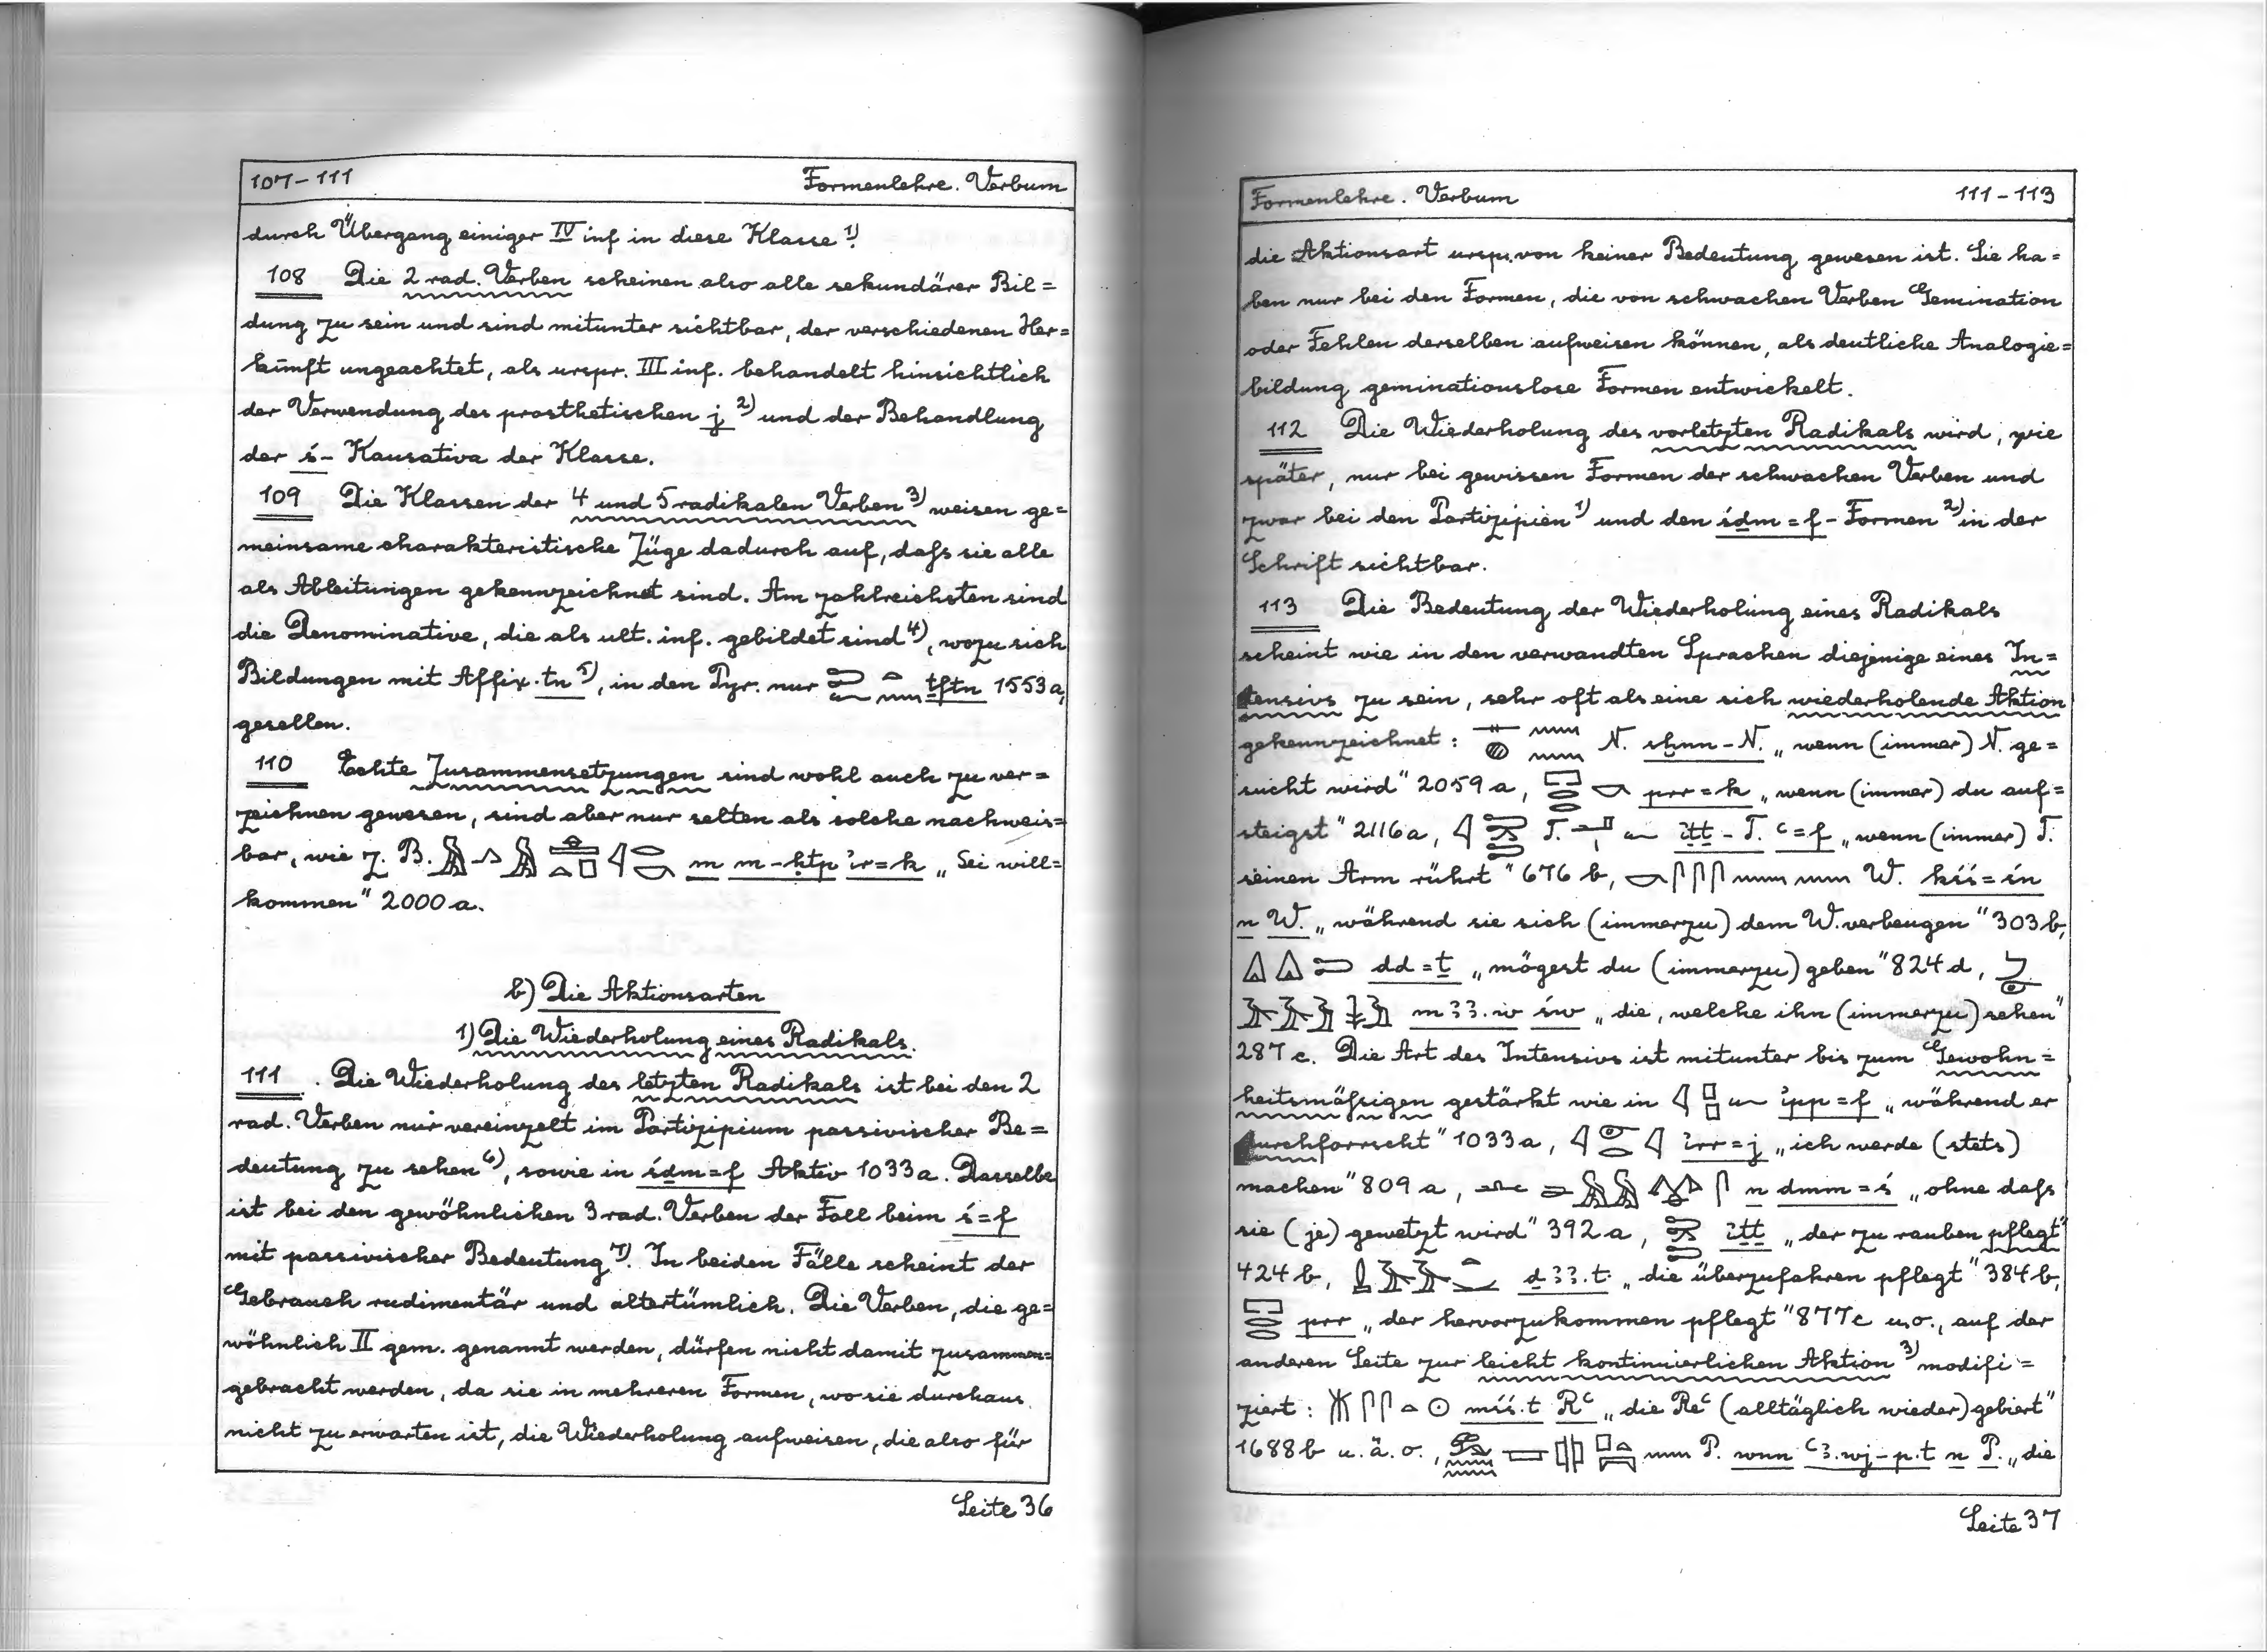 107-111 Formenlehre. Verbum
durch Übergang einiger IV inf in diese Klasse 1).
108 Die 2 rad. Verben scheinen also alle sekundärer Bil=
dung zu sein und sind mitunter sichtbar, der verschiedenen Her=
kunft ungeachtet, als urspr. III inf. behandelt hinsichtlich
der Verwendung des prosthetischen j 2) und der Behandlung
der ś- Kausativa der Klasse.
109 Die Klassen der 4 und 5 radikalen Verben 3) weisen ge=
meinsame charakteristische Züge dadurch auf, daſs sie alle
als Ableitungen gekennzeichnet sind. Am zahlreichsten sind
die Denominative, die als ult. inf. gebildet sind 4), wozu sich
Bildungen mit Affix .tn 5), in den Pyr. nur ṯftn 1553 a,
gesellen.
110 Echte Zusammensetzungen sind wohl auch zu ver=
zeichnen gewesen, sind aber nur selten als solche nachweis=
bar, wie z. B. m m-ḥtp ir=k „Sei will=
kommen" 2000 a.
b) Die Aktionsarten
1) Die Wiederholung eines Radikals.
111. Die Wiederholung des letzten Radikals ist bei den 2
rad. Verben nur vereinzelt im Partizipium passivischer Be=
deutung zu sehen 6), sowie in śḏm=f Aktiv 1033 a. Dasselbe
ist bei den gewöhnlichen 3 rad. Verben der Fall beim ś=f
mit passivischer Bedeutung 7). In beiden Fälle scheint der
Gebrauch rudimentär und altertümlich. Die Verben, die ge=
wöhnlich II gem. genannt werden, dürfen nicht damit zusammen=
gebracht werden, da sie in mehreren Formen, wo sie durchaus
nicht zu erwarten ist, die Wiederholung aufweisen, die also für
Seite 36
Formenlehre. Verbum 111-113
die Aktionsart urspr. von keiner Bedeutung gewesen ist. Sie ha=
ben nur bei den Formen, die von schwachen Verben Gemination
oder Fehlen derselben aufweisen können, als deutliche Analogie=
bildung geminationslose Formen entwickelt.
112 Die Wiederholung des vorletzten Radikals wird, wie
später, nur bei gewissen Formen der schwachen Verben und
zwar bei den Partizipien 1) und den śḏm=f- Formen 2) in der
Schrift sichtbar.
113 Die Bedeutung der Wiederholung eines Radikals
scheint wie in den verwandten Sprachen diejenige eines In=
tensivs zu sein, sehr oft als eine sich wiederholende Aktion
gekennzeichnet: N. sḫnn-N. „wenn (immer) N. ge=
sucht wird" 2059 a, prr=k „wenn (immer) du auf=
steigst" 2116 a, T. iṯṯ-T. ꜥ=f „wenn (immer) T.
seinen Arm rührt" 676 b, W. kśś=śn
n W. „während sie sich (immerzu) dem W. verbeugen" 303 b,
dd=ṯ „mögest du (immerzu) geben" 824 d,
mꜣꜣ.w św „die, welche ihn (immerzu) sehen"
287 c. Die Art des Intensivs ist mitunter bis zum Gewohn=
heitsmäſsigen gestärkt wie in ipp=f „während er
durchforscht" 1033 a, irr=j „ich werde (stets)
machen" 809 a, n dmm=ś „ohne daſs
sie (je) gewetzt wird" 392 a, iṯṯ „der zu rauben pflegt"
424 b, ḏꜣꜣ.t „die überzufahren pflegt" 384 b,
prr „der hervorzukommen pflegt" 877 c u.o., auf der
anderen Seite zur leicht kontinuierlichen Aktion 3) modifi=
ziert: mśś.t Rꜥ „die Reꜥ (alltäglich wieder) gebiert"
1688 b u. ä. o., P. wnn ꜥꜣ.wj-p.t n P. „die
Seite 37